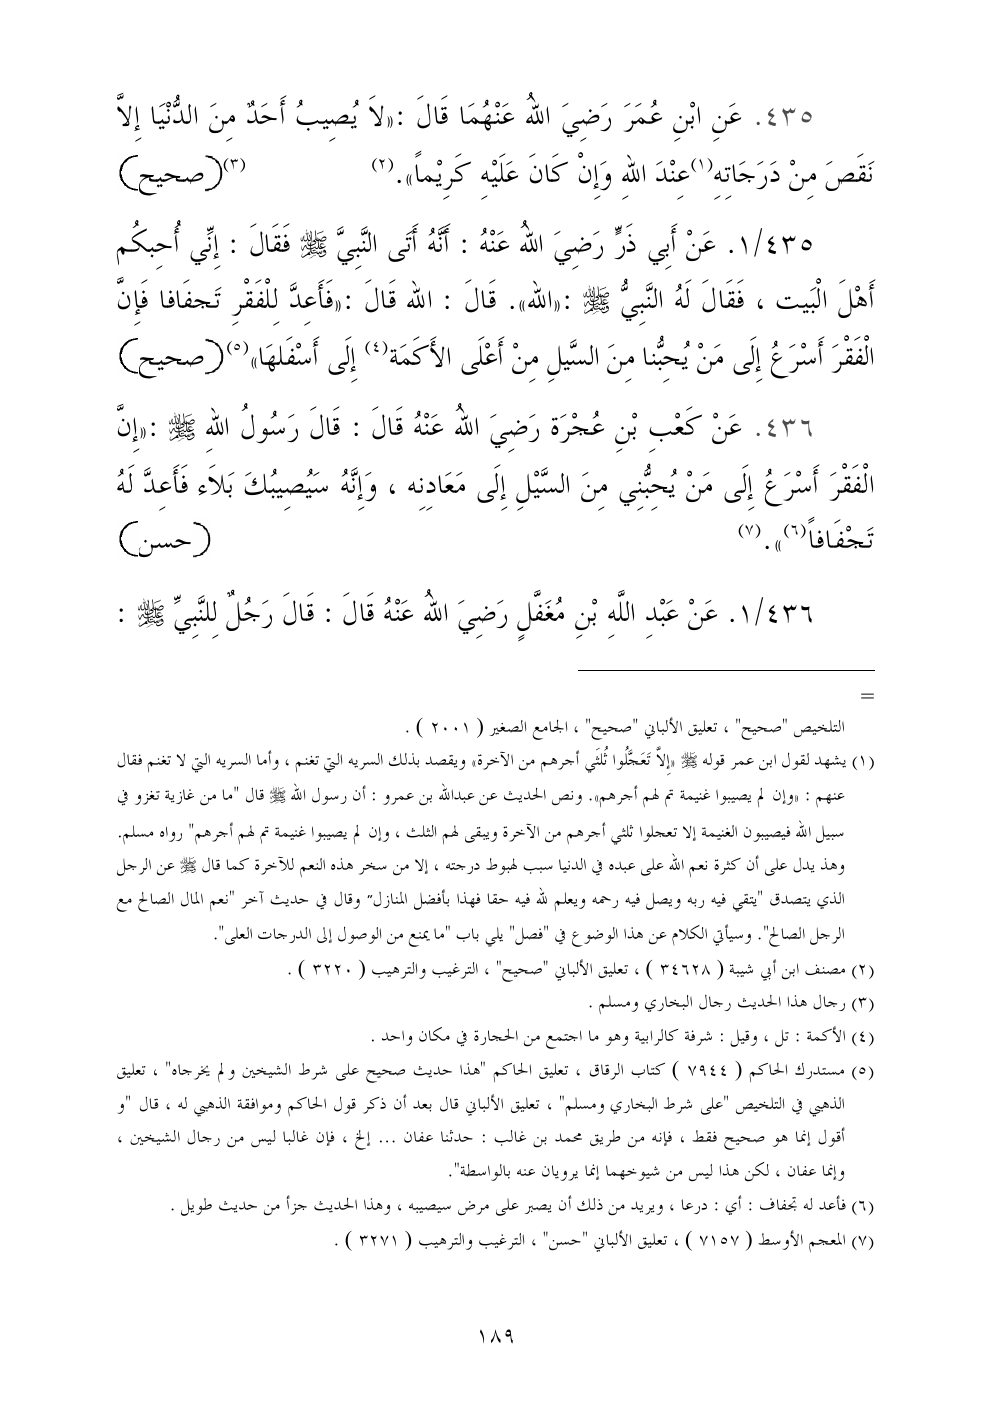 ٤٣٥. عَنِ ابْنِ عُمَرَ رَضِيَ اللهُ عَنْهُمَا قَالَ :«لاَ يُصِيبُ أَحَدٌ مِنَ الدُّنْيَا إِلاَّ
نَقَصَ مِنْ دَرَجَاتِهِ(١)عِنْدَ اللهِ وَإِنْ كَانَ عَلَيْهِ كَرِيْماً».(٢) (٣)(صحيح)
١/٤٣٥. عَنْ أَبِي ذَرٍّ رَضِيَ اللهُ عَنْهُ : أَنَّهُ أَتَى النَّبِيَّ ﷺ فَقَالَ : إِنِّي أُحِبكُم
أَهْلَ الْبَيت ، فَقَالَ لَهُ النَّبِيُّ ﷺ :«الله». قَالَ : الله قَالَ :«فَأَعِدَّ لِلْفَقْرِ تَجفَافا فَإِنَّ
الْفَقْرَ أَسْرَعُ إِلَى مَنْ يُحِبُّنا مِنَ السَّيلِ مِنْ أَعْلَى الأَكَمَة(٤) إِلَى أَسْفَلهَا»(٥)(صحيح)
٤٣٦. عَنْ كَعْبِ بْنِ عُجْرَة رَضِيَ اللهُ عَنْهُ قَالَ : قَالَ رَسُولُ اللهِ ﷺ :«إِنَّ
الْفَقْرَ أَسْرَعُ إِلَى مَنْ يُحِبُّنِي مِنَ السَّيْلِ إِلَى مَعَادِنِه ، وَإِنَّهُ سَيُصِيبُكَ بَلاَء فَأَعِدَّ لَهُ
تَجْفَافاً(٦)».(٧) (حسن)
١/٤٣٦. عَنْ عَبْدِ اللَّهِ بْنِ مُغَفَّلٍ رَضِيَ اللهُ عَنْهُ قَالَ : قَالَ رَجُلٌ لِلنَّبِيِّ ﷺ :
=
التلخيص "صحيح" ، تعليق الألباني "صحيح" ، الجامع الصغير ( ٢٠٠١ ) .
(١) يشهد لقول ابن عمر قوله ﷺ «إِلاَّ تَعَجَّلُوا ثُلثَي أجرهم من الآخرة» ويقصد بذلك السريه التي تغنم ، وأما السريه التي لا تغنم فقال
عنهم : «وإن لم يصيبوا غنيمة تم لهم أجرهم». ونص الحديث عن عبدالله بن عمرو : أن رسول الله ﷺ قال "ما من غازية تغزو في
سبيل الله فيصيبون الغنيمة إلا تعجلوا ثلثي أجرهم من الآخرة ويبقى لهم الثلث ، وإن لم يصيبوا غنيمة تم لهم أجرهم" رواه مسلم.
وهذ يدل على أن كثرة نعم الله على عبده في الدنيا سبب لهبوط درجته ، إلا من سخر هذه النعم للآخرة كما قال ﷺ عن الرجل
الذي يتصدق "يتقي فيه ربه ويصل فيه رحمه ويعلم لله فيه حقا فهذا بأفضل المنازل" وقال في حديث آخر "نعم المال الصالح مع
الرجل الصالح". وسيأتي الكلام عن هذا الوضوع في "فصل" يلي باب "ما يمنع من الوصول إلى الدرجات العلى".
(٢) مصنف ابن أبي شيبة ( ٣٤٦٢٨ ) ، تعليق الألباني "صحيح" ، الترغيب والترهيب ( ٣٢٢٠ ) .
(٣) رجال هذا الحديث رجال البخاري ومسلم .
(٤) الأكمة : تل ، وقيل : شرفة كالرابية وهو ما اجتمع من الحجارة في مكان واحد .
(٥) مستدرك الحاكم ( ٧٩٤٤ ) كتاب الرقاق ، تعليق الحاكم "هذا حديث صحيح على شرط الشيخين ولم يخرجاه" ، تعليق
الذهبي في التلخيص "على شرط البخاري ومسلم" ، تعليق الألباني قال بعد أن ذكر قول الحاكم وموافقة الذهبي له ، قال "و
أقول إنما هو صحيح فقط ، فإنه من طريق محمد بن غالب : حدثنا عفان ... إلخ ، فإن غالبا ليس من رجال الشيخين ،
وإنما عفان ، لكن هذا ليس من شيوخهما إنما يرويان عنه بالواسطة".
(٦) فأعد له تجفاف : أي : درعا ، ويريد من ذلك أن يصبر على مرض سيصيبه ، وهذا الحديث جزأ من حديث طويل .
(٧) المعجم الأوسط ( ٧١٥٧ ) ، تعليق الألباني "حسن" ، الترغيب والترهيب ( ٣٢٧١ ) .
١٨٩